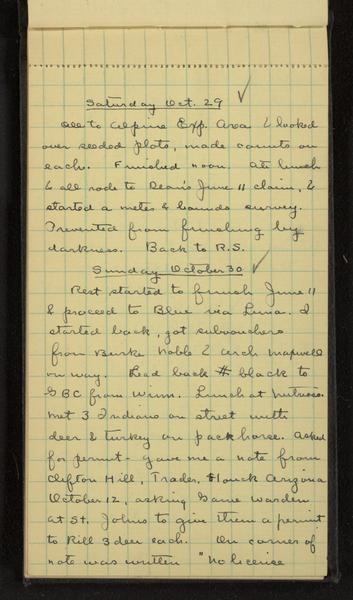 Saturday Oct. 29 ✓
All to Alpine Exp. Area & looked
over seeded plots, made counts on
each. Finished noon. Ate lunch
& all rode to Dean's June 11 claim, &
started a metes & bounds survey.
Prevented from finishing by
darkness. Back to R.S.
Sunday October 30 ✓
Rest started to finish June 11
& proceed to Blue via Luna. I
started back, got subvouchers
from Burke Noble & Arch Maxwell
on way. Lead back # black to
GBC from Winn. Lunch at Nutrioso.
Met 3 Indians on street with
deer & turkey on packhorse. Asked
for permit - gave me a note from
Clifton Hill, Trader, Houck Arizona
October 12, asking Game Warden
at St. Johns to give them a permit
to kill 3 deer each. On corner of
note was written "No license